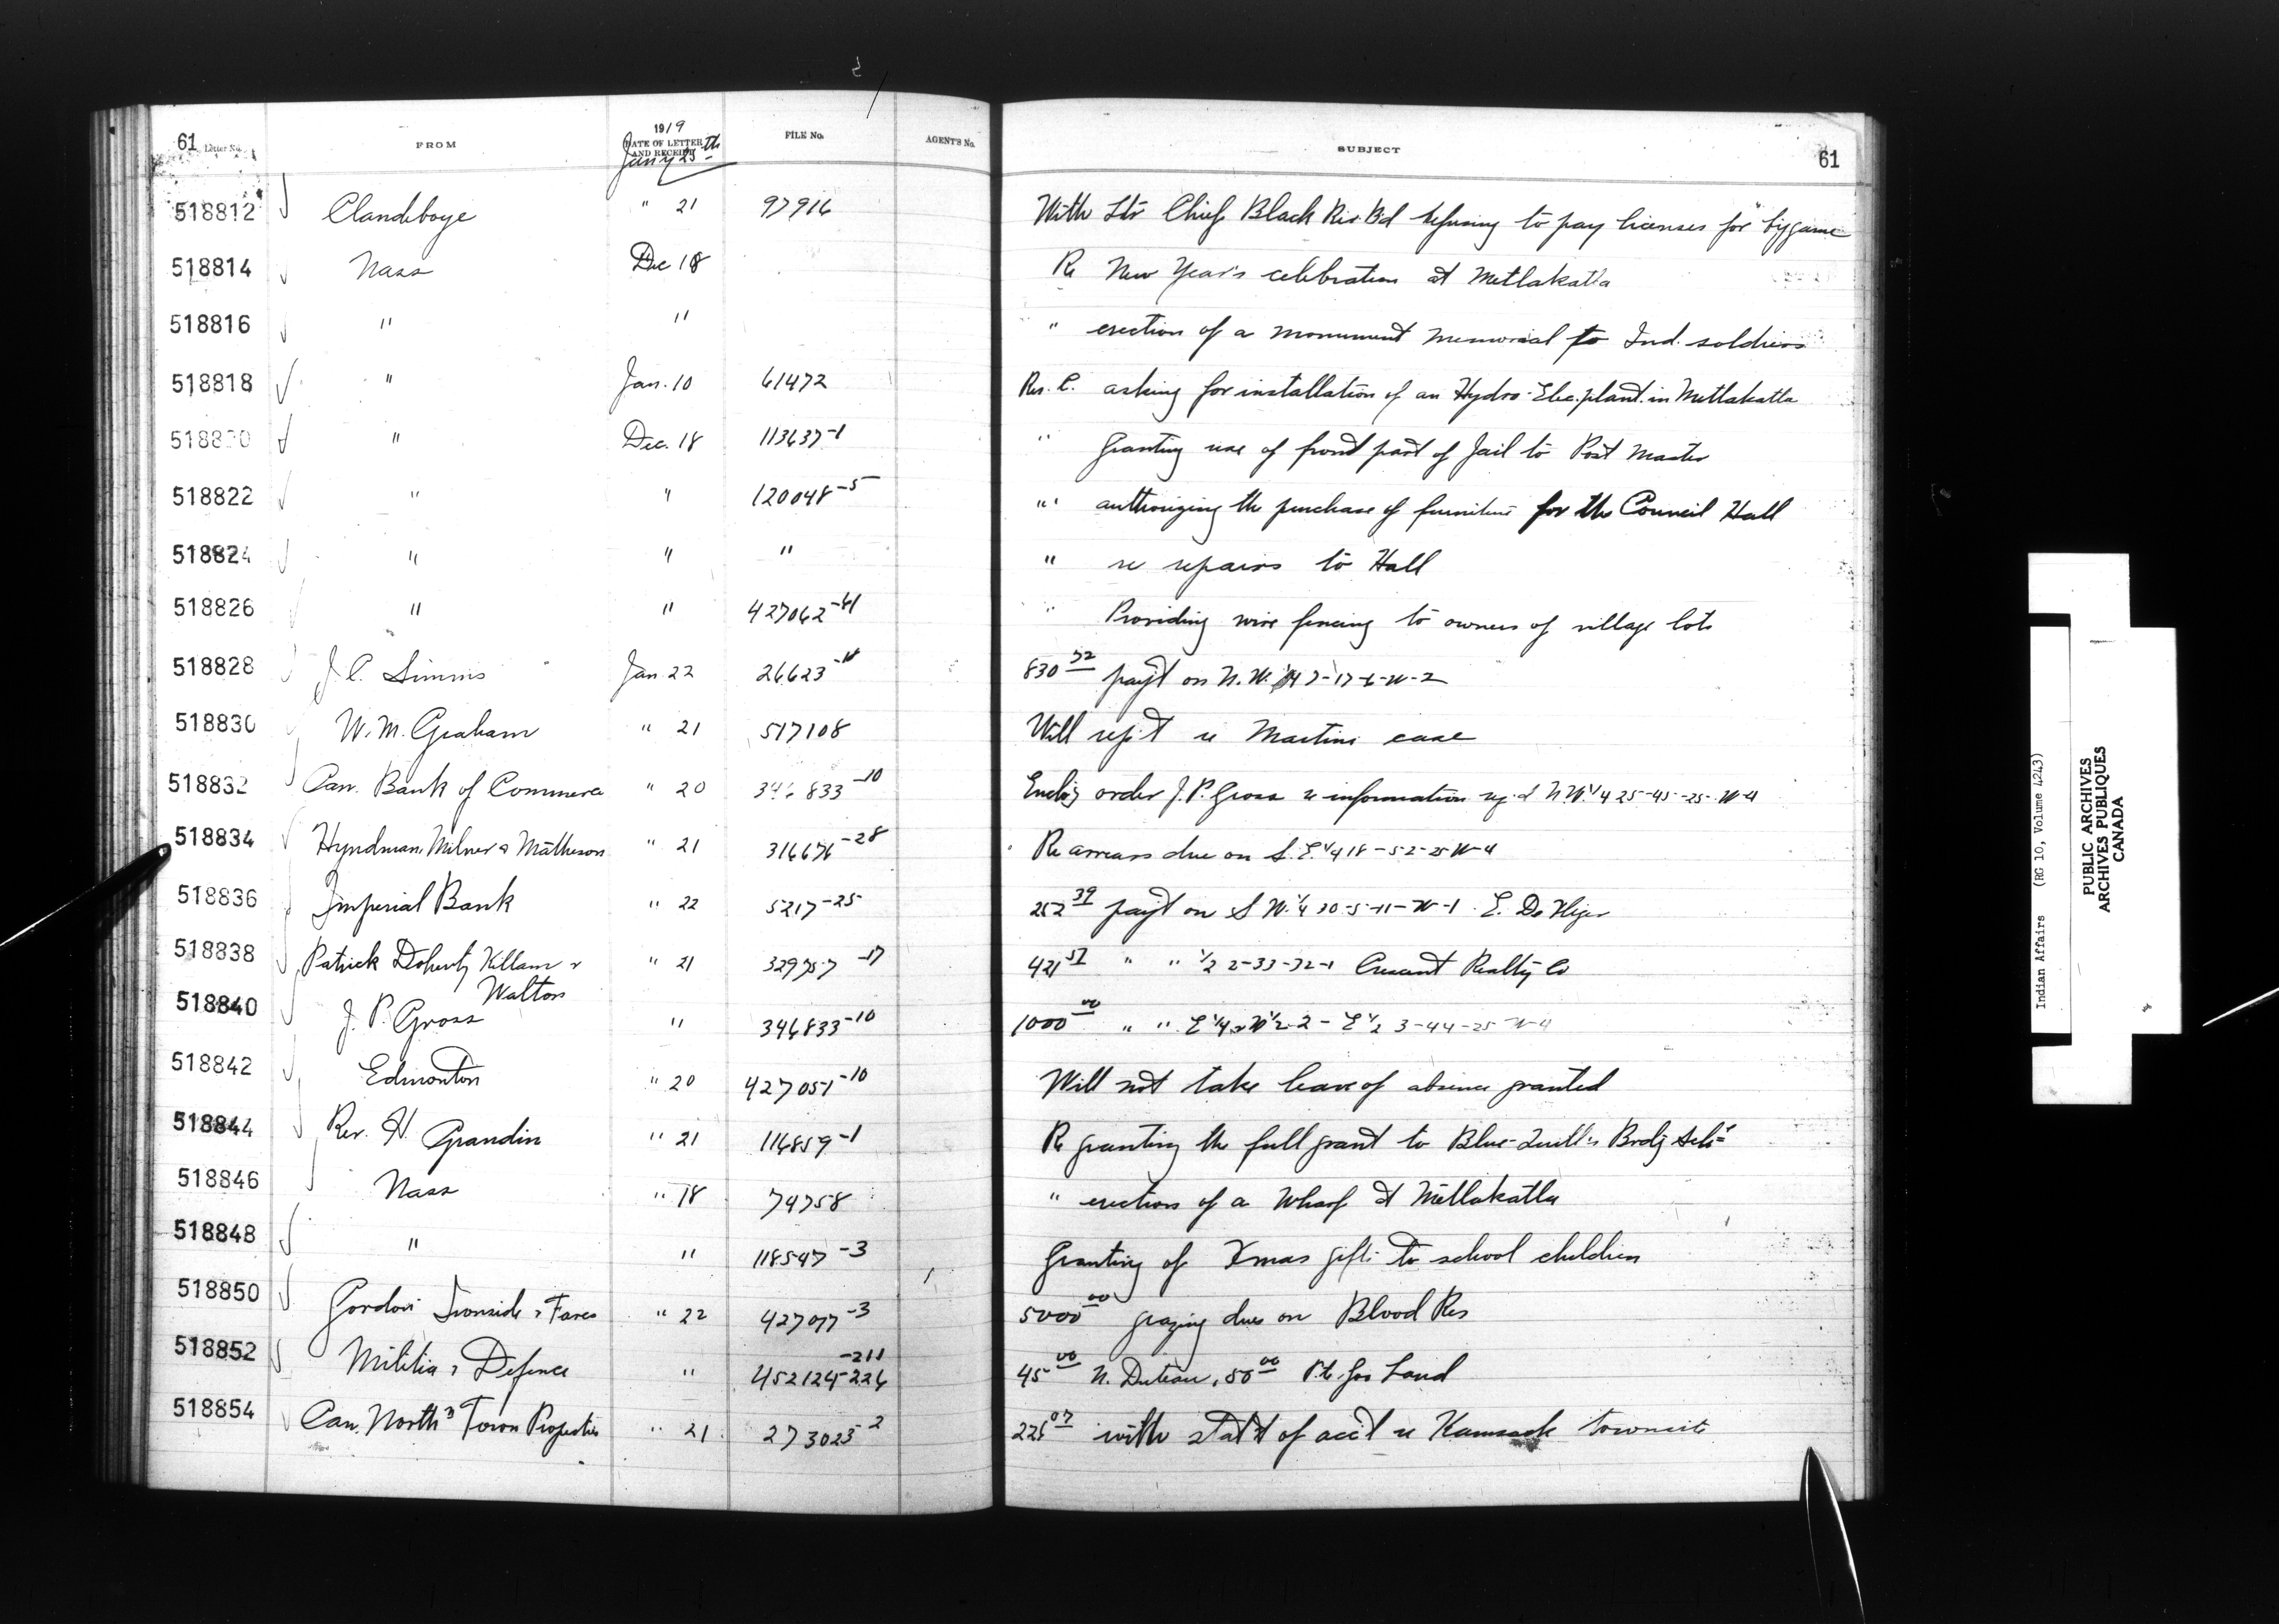 61 Letter No. FROM 1919 DATE OF LETTER AND RECEIPT FILE No. AGENT'S No. SUBJECT 61
Jan'y 25th
518812 Clandeboye " 21 97916 With Ltr Chief Black Riv. Bd refusing to pay licenses for big game
518814 Nass Dec 18 Re New Year's celebration at Metlakatla
518816 " " " erection of a monument memorial to Ind. soldiers
518818 " Jan. 10 61472 Res. C. asking for installation of an Hydro-Elec. plant in Metlakatla
518820 " Dec. 18 113637-1 " Granting use of front part of Jail to Post Master
518822 " " 120048-5 " authorizing the purchase of furniture for the Council Hall
518824 " " " " re repairs to Hall
518826 " " 427062-41 " Providing wire fencing to owners of village lots
518828 J. C. Simms Jan. 22 26623 830 72 pay't on N.W. 1/4 7-17-6-W-2
518830 W. M. Graham " 21 517108 Will rep't re Martins case
518832 Can. Bank of Commerce " 20 346833-10 Enclo'g order J. P. Gross re information reg'd N.W. 1/4 25-45-25-W-4
518834 Hyndman, Milner & Matheson " 21 316676-28 Re arrears due on S. E. 1/4 18-52-25 W-4
518836 Imperial Bank " 22 5217-25 252 39 pay't on S W. 1/4 30-5-11-W-1. E.
518838 Patrick Doherty Killam & " 21 329757-17 421 57 " " 1/2 2-33-32-1 Crescent Realty Co
Walton
518840 J. P. Gross " 346833-10 1000 00 " " E 1/4 & W 1/2 2 - E 1/2 3-44-25-W-4
518842 Edmonton " 20 427051-10 Will not take leave of absence granted
518844 Rev. H. Grandin " 21 116859-1 Re granting the full grant to Blue-Quill's Brdg Sch
518846 Nass " 18 74758 " erection of a Wharf at Metlakatla
518848 " " 118547-3 Granting of Xmas gifts to school children
518850 Gordon Ironside & Fares " 22 427077-3 5000 00 grazing dues on Blood Res
518852 Militia & Defence " 452124-211 45 00 N. 50 00 Pte. Jos Land
-226
518854 Can. North'n Town Properties " 21 273023-2 225 07 with stat't of acc't re Kamsack townsite
Indian Affairs (RG 10, Volume 4243)
PUBLIC ARCHIVES
ARCHIVES PUBLIQUES
CANADA